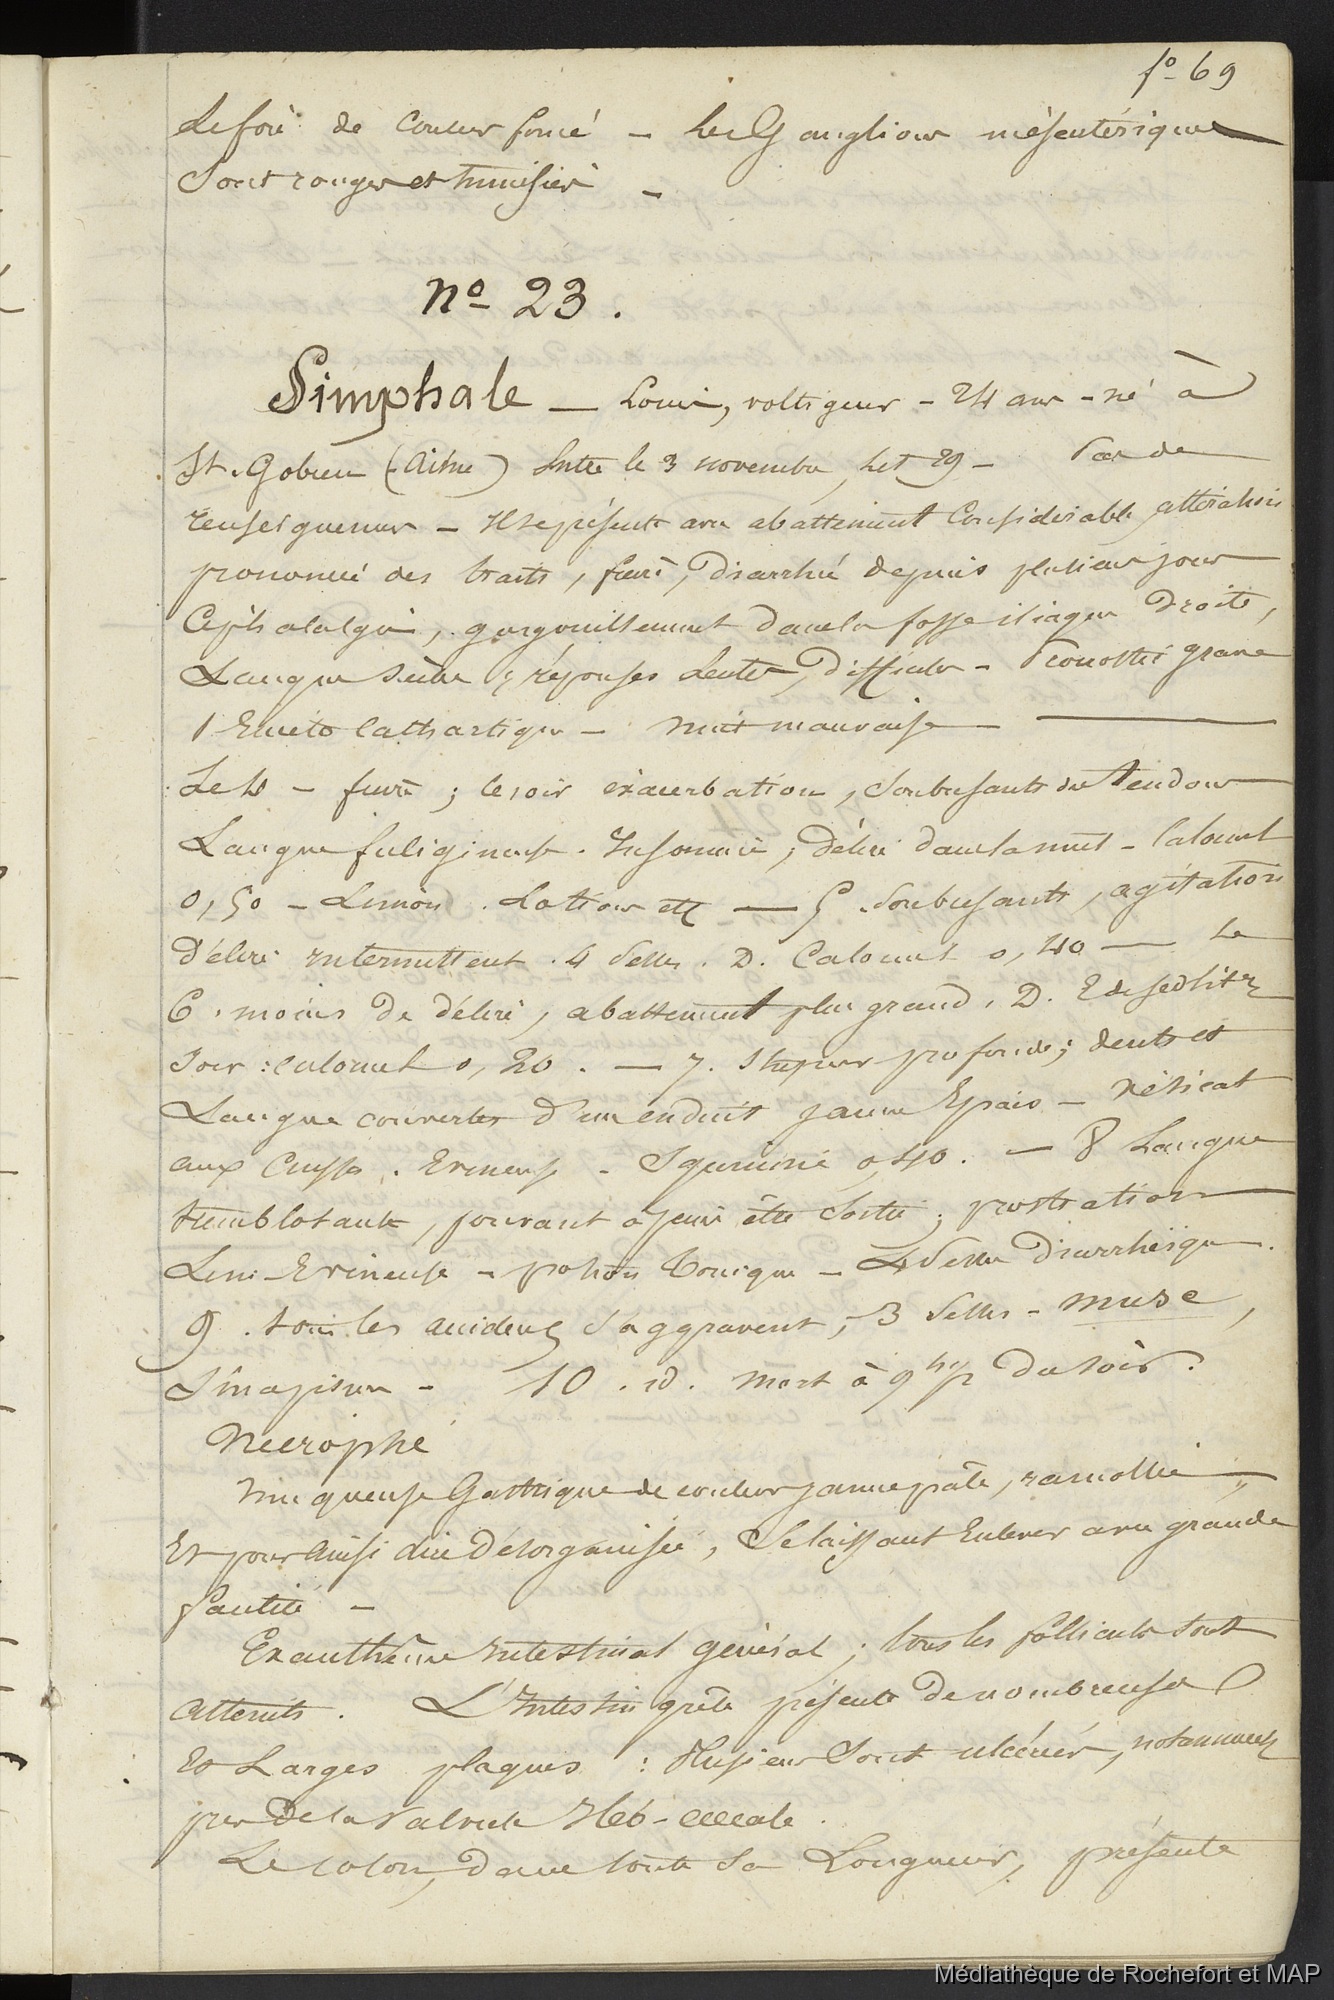 fo 69
Le foie de couleur foncé – Les Ganglions mésentériques
Sont rouges et tuméfiés –
no 23.
Simphale – Louis, voltigeur – 24 ans – né à
St. Gobien (Aisne) Entre le 3 novembre, lit 29 – Pas de
renseignemens – Il se présente avec abattement Considérable, altération
prononcée des traits, fièvre, Diarrhée depuis plusieurs jours
Céphalalgie, gargouillement dans la fosse iliaque Droite,
Langue sèche ; réponses Lentes, Difficiles – Pronostic grave
1 Emeto Cathartique – Nuit mauvaise –
Le 4 – fièvre ; le soir exacerbation, Soubresauts des Tendons
Langue fuligineuse . Insomnie, Délire dans la nuit – Calomel
0,50 – Limon . Lotions etc – 5 . Soubresauts, agitation
Délire intermittent . 4 Selles . D. Calomel 0,40 – Le
6 . moins de délire, abattement plus grand . D. E de sedlitz
Soir : calomel 0,20 . – 7 . Stupeur profonde ; dents et
Langue couvertes d'un enduit jaune Epais – Vésicat
aux Cuisses . Vineuse – Sqquinine 0,40 . – 8 Langue
tremblotante, pouvant à peine être Sortie ; prostration
Lim – Vineuse – potion Tonique – 4 Selles Diarrhéïques .
9 . tous les accidens S'aggravent, – 3 Selles – musc,
Sinapismes – 10 . id . Mort à 9h 1/2 Du soir .
Nécropsie
Muqueuse Gastrique de couleur jaune pâle, ramollie,
Et pour ainsi dire Désorganisée, Se laissant Enlever avec grande
facilité –
Exanthème Intestinal général ; tous les follicules Sont
atteints . L'Intestin grêle présente De nombreuses
Et Larges plaques : Plusieurs Sont ulcérées, notamment
près De la Valvule Iléo-cœcale .
Le colon, Dans toute Sa Longueur, présente
Médiathèque de Rochefort et MAP